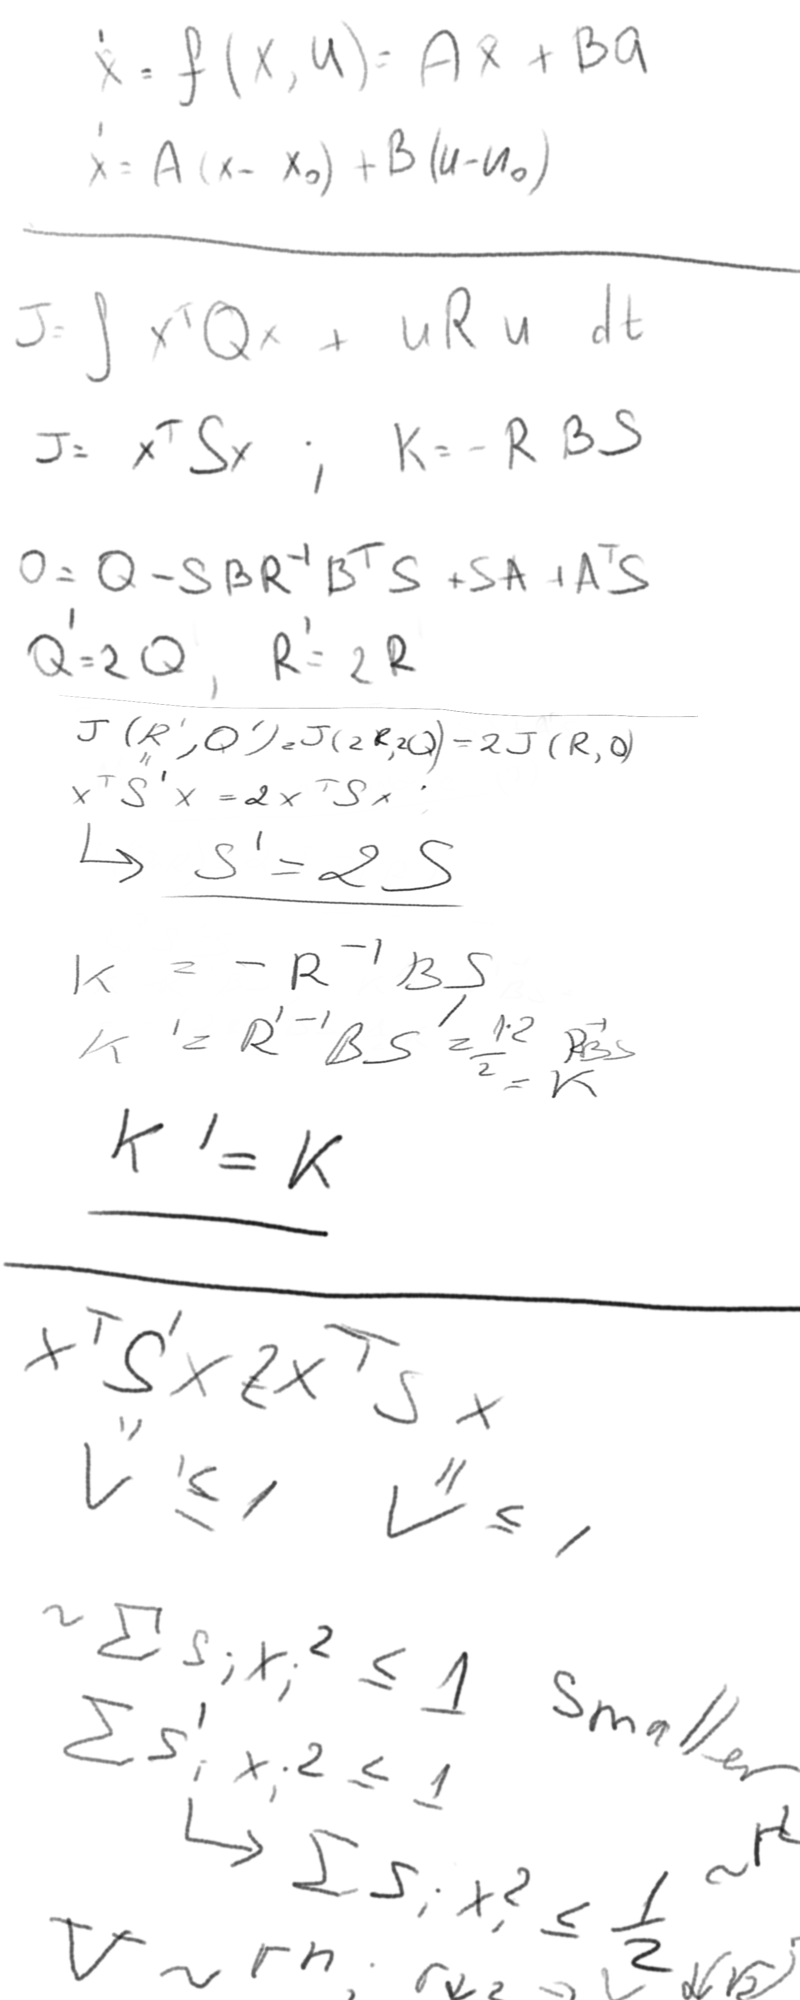 ẋ = f(x, u) = Ax + Bu
ẋ = A(x - x₀) + B(u-u₀)
J = ∫ xᵀQx + uRu dt
J = xᵀSx ; K = -RBS
0 = Q - SBR⁻¹BᵀS + SA + AᵀS
Q' = 2Q, R' = 2R
J(R', Q') = J(2R, 2Q) = 2J(R, Q)
"
xᵀS'x = 2xᵀSx
↳ S' = 2S
K = -R⁻¹BS
K' = R'⁻¹BS' = 1·2/2 R⁻¹BS
= K
K' = K
xᵀS'x ≥ xᵀSx
V' ≤ 1 V ≤ 1
~ Σ sᵢxᵢ² ≤ 1 smaller
Σ s'ᵢxᵢ² ≤ 1
↳ Σ sᵢxᵢ² ≤ 1/2 ~ r²
V ~ rⁿ;